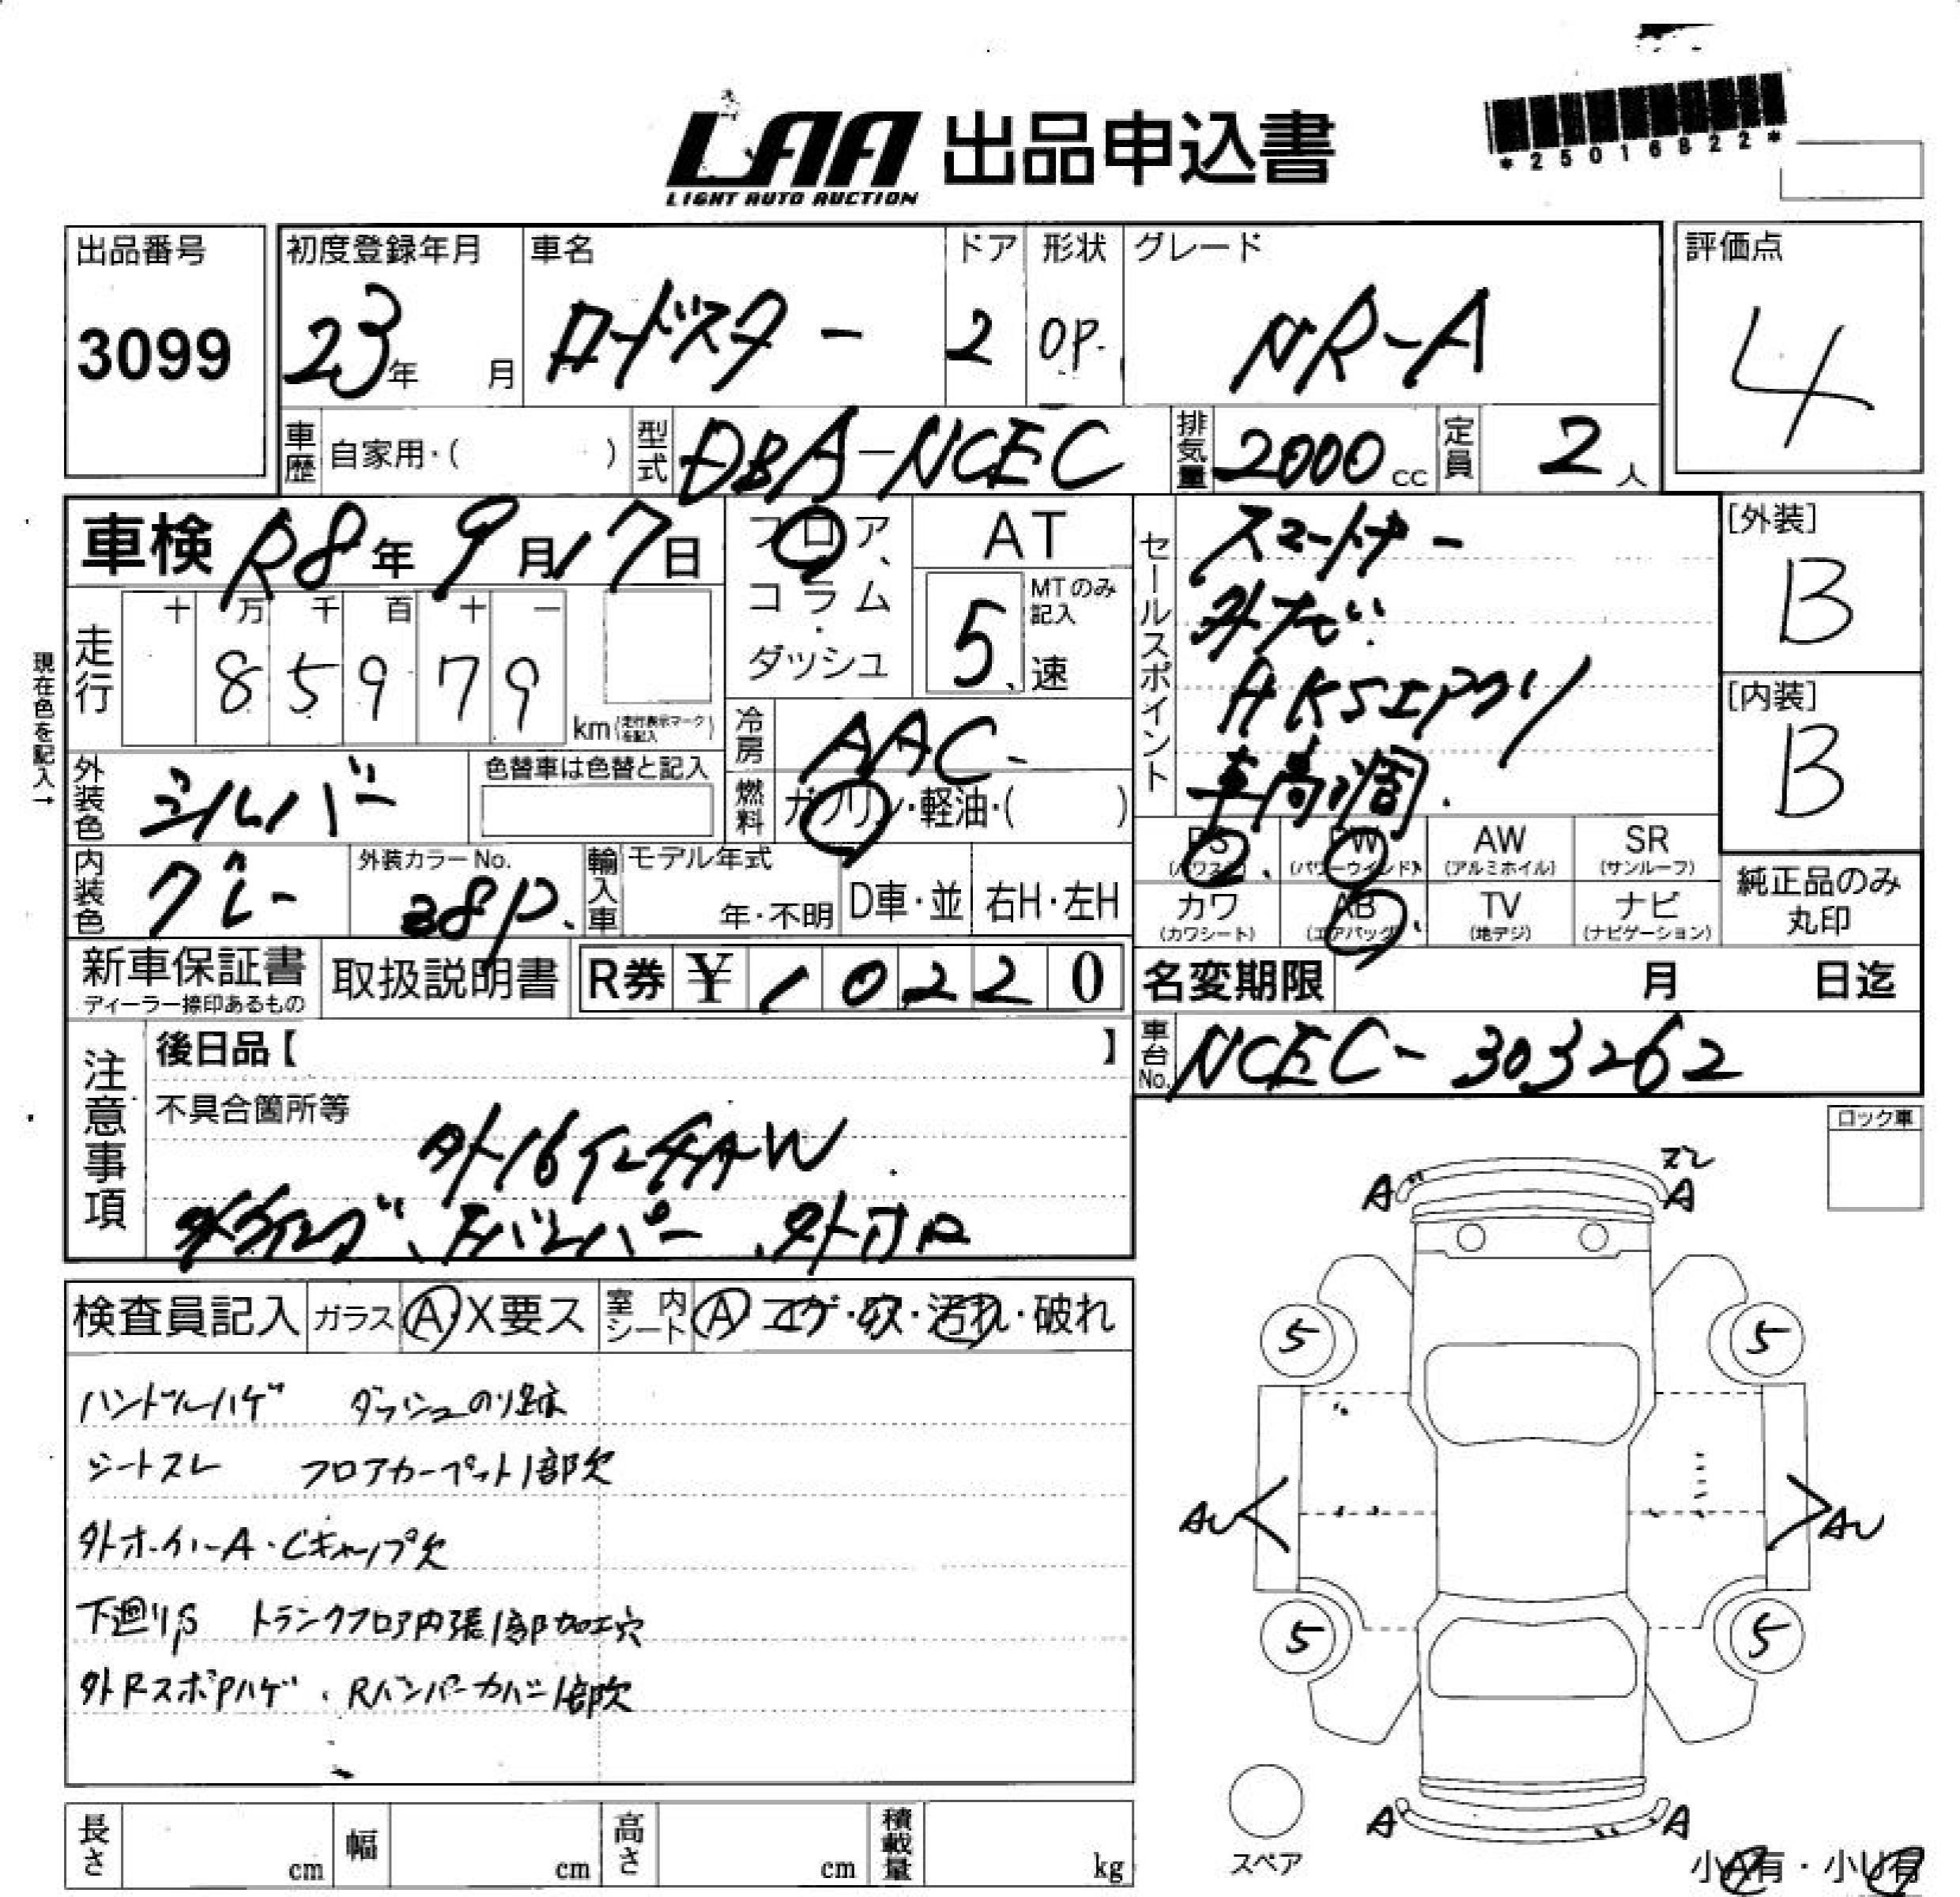 LAA 出品申込書
LIGHT AUTO AUCTION
*25016822*
出品番号
3099
初度登録年月
23年 月
車名
ロードスター
ドア
2
形状
OP.
グレード
NR-A
評価点
4
車歴 自家用・( )
型式 DBA-NCEC
排気量 2000cc
定員 2人
車検 R8年9月17日
フロア、
コラム・
ダッシュ
AT
5速
MTのみ記入
セールスポイント
スマートキー
外ナビ.
HKSエアクリ
車高調.
[外装]
B
[内装]
B
現在色を記入→
走行
十 万 千 百 十 一
85979
km(走行表示マークを記入)
冷房 AAC
燃料 ガソリン・軽油・( )
外装色 シルバー
色替車は色替と記入
内装色 グレー
外装カラーNo.
38P.
輸入車
モデル年式
年・不明
D車・並
右H・左H
PS(パワステ)
PW(パワーウインド)
AW(アルミホイル)
SR(サンルーフ)
カワ(カワシート)
AB(エアバッグ)
TV(地デジ)
ナビ(ナビゲーション)
純正品のみ丸印
新車保証書
ディーラー捺印あるもの
取扱説明書
R券 ¥10220
名変期限 月 日迄
車台No. NCEC-303262
注意事項
後日品【 】
不具合箇所等
外16インチAW
ロック車
検査員記入
ガラス A X要ス
室内シート A コゲ・穴・汚れ・破れ
ハンドルハゲ ダッシュのり跡
シートスレ フロアカーペット1部欠
外ホイールA・Cキャップ欠
下廻りS トランクフロア内張1部加工穴
外RスポPハゲ、Rバンパーカバー1部欠
A
ズレ
A
5
5
AU
AU
5
5
A
A
スペア
小A有・小U有
長さ cm
幅 cm
高さ cm
積載量 kg